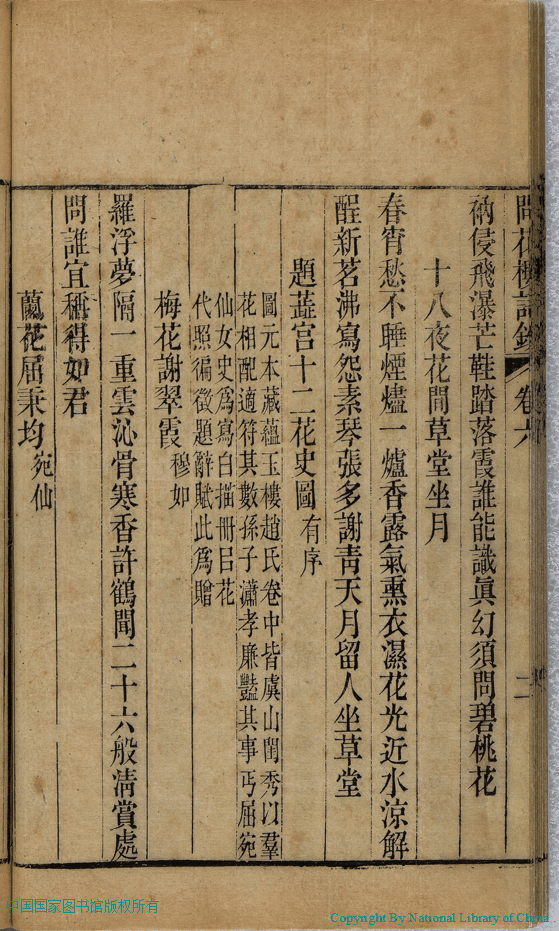 問花樓詩鈔 卷六
衲侵飛瀑芒鞋踏落霞誰能識眞幻須問碧桃花
十八夜花間草堂坐月
春宵愁不睡煙燼一爐香露氣熏衣濕花光近水涼解
酲新茗沸寫怨素琴張多謝靑天月留人坐草堂
題蕋宫十二花史圖 有序
圖元本藏蘊玉樓趙氏卷中皆虞山閨秀以羣
花相配適符其數孫子瀟孝廉豔其事丐屈宛
仙女史爲寫白描冊吕花
代照徧徵題辭賦此爲贈
梅花謝翠霞 穆如
羅浮夢隔一重雲沁骨寒香許鶴聞二十六般淸賞處
問誰宜稱得如君
蘭花屈秉均 宛仙
中国国家图书馆版权所有
Copyright By National Library of China